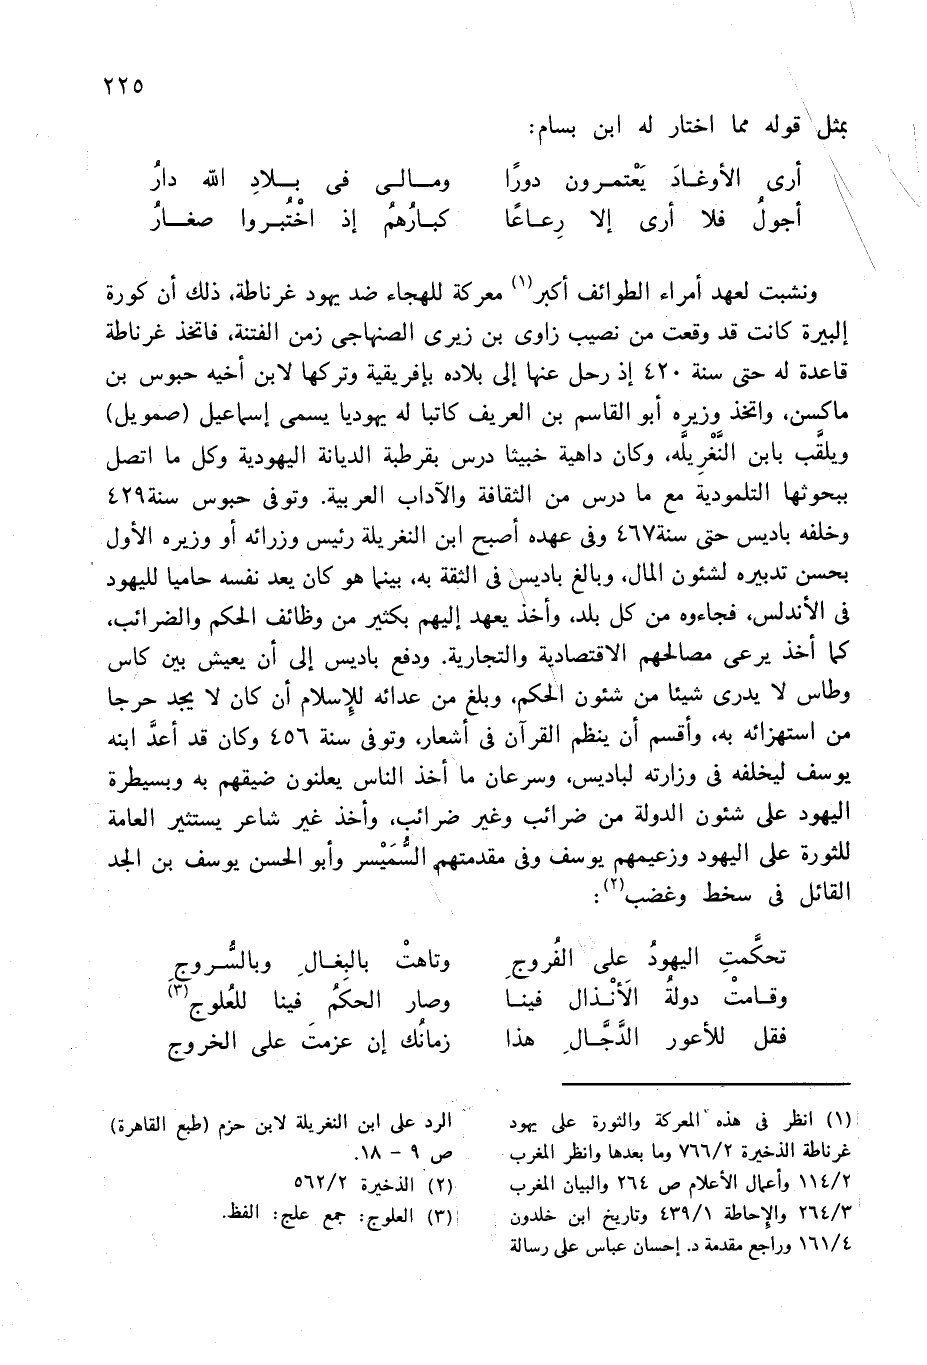 ٢٢٥
بمثل قوله مما اختار له ابن بسام:
أرى الأوغادَ يَعْتمرون دورًا ومالى فى بلادِ الله دارُ
أجولُ فلا أرى إلا رِعاعًا كبارُهمُ إذ اخْتُبروا صغارُ
ونشبت لعهد أمراء الطوائف أكبر(١) معركة للهجاء ضد يهود غرناطة، ذلك أن كورة
إلبيرة كانت قد وقعت من نصيب زاوى بن زيرى الصنهاجى زمن الفتنة، فاتخذ غرناطة
قاعدة له حتى سنة ٤٢٠ إذ رحل عنها إلى بلاده بإفريقية وتركها لابن أخيه حبوس بن
ماكسن، واتخذ وزيره أبو القاسم بن العريف كاتبا له يهوديا يسمى إسماعيل (صمويل)
ويلقَّب بابن النَّغْرِيلَّه، وكان داهية خبيثا درس بقرطبة الديانة اليهودية وكل ما اتصل
ببحوثها التلمودية مع ما درس من الثقافة والآداب العربية. وتوفى حبوس سنة٤٢٩
وخلفه باديس حتى سنة٤٦٧ وفى عهده أصبح ابن النغريلة رئيس وزرائه أو وزيره الأول
بحسن تدبيره لشئون المال، وبالغ باديس فى الثقة به، بينما هو كان يعد نفسه حاميا لليهود
فى الأندلس، فجاءوه من كل بلد، وأخذ يعهد إليهم بكثير من وظائف الحكم والضرائب،
كما أخذ يرعى مصالحهم الاقتصادية والتجارية. ودفع باديس إلى أن يعيش بين كاس
وطاس لا يدرى شيئا من شئون الحكم، وبلغ من عدائه للإسلام أن كان لا يجد حرجا
من استهزائه به، وأقسم أن ينظم القرآن فى أشعار، وتوفى سنة ٤٥٦ وكان قد أعدَّ ابنه
يوسف ليخلفه فى وزارته لباديس، وسرعان ما أخذ الناس يعلنون ضيقهم به وبسيطرة
اليهود على شئون الدولة من ضرائب وغير ضرائب، وأخذ غير شاعر يستثير العامة
للثورة على اليهود وزعيمهم يوسف وفى مقدمتهم السُّمَيْسر وأبو الحسن يوسف بن الجد
القائل فى سخط وغضب(٢):
تحكَّمتِ اليهودُ على الفُروجِ وتاهتْ بالبِغالِ وبالسُّروجِ
وقامتْ دولةُ الَأنْذال فينا وصار الحكمُ فينا للعُلوجِ(٣)
فقل للأعور الدَّجَّالِ هذا زمانُك إن عزمتَ على الخروج
(١) انظر فى هذه المعركة والثورة على يهود
غرناطة الذخيرة ٧٦٦/٢ وما بعدها وانظر المغرب
١١٤/٢ وأعمال الأعلام ص ٢٦٤ والبيان المغرب
٢٦٤/٣ والإحاطة ٤٣٩/١ وتاريخ ابن خلدون
١٦١/٤ وراجع مقدمة د. إحسان عباس على رسالة
الرد على ابن النغريلة لابن حزم (طبع القاهرة)
ص ٩ – ١٨.
(٢) الذخيرة ٥٦٢/٢
(٣) العلوج: جمع علج: الفظ.